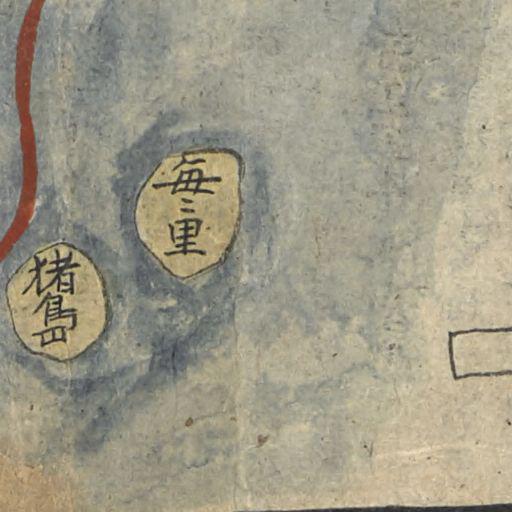 毎ミ里
猪嶋